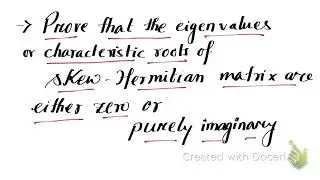 → Prove that the eigenvalues
or characteristic roots of
skew-Hermitian matrix are
either zero or
purely imaginary
Created with Doceri